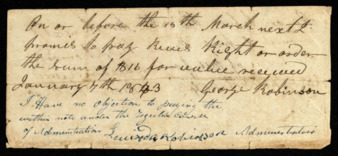 On or before the 15th March next I
promise to pay Right or order
the sum of $16 for value received
January 7th 1843 George Robinson
I Have no objection to paying the
within note under the
of Administration Robinson Administrator